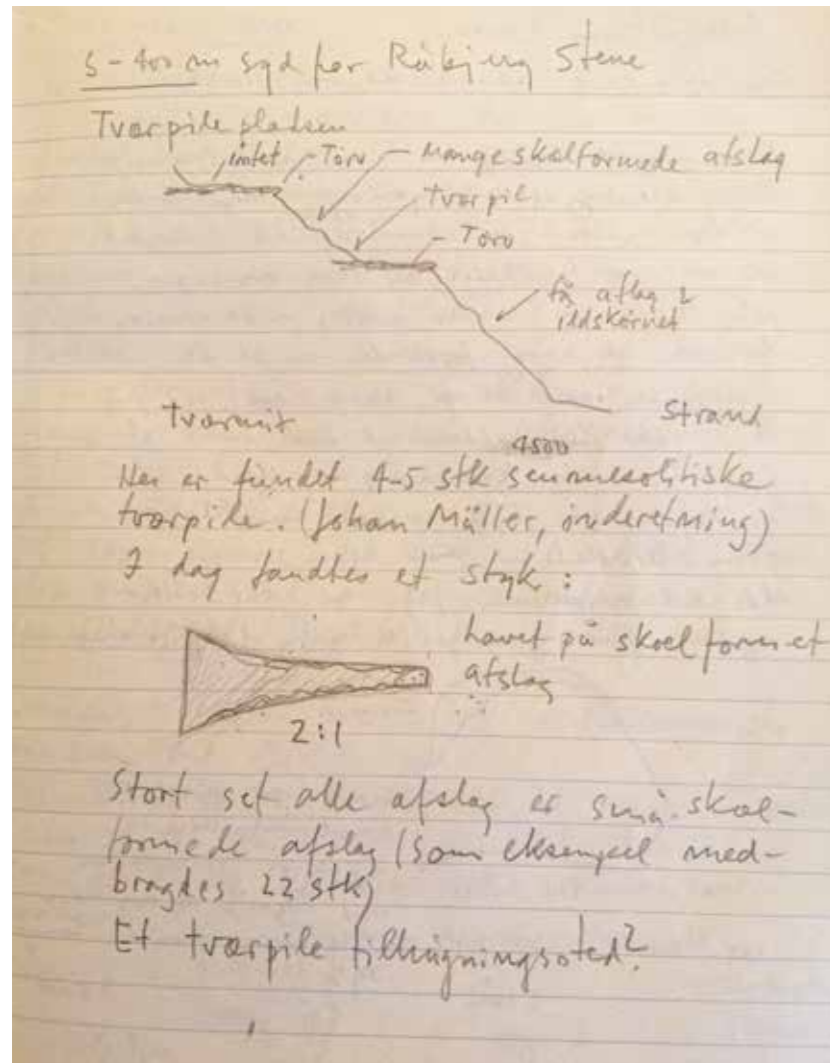 5-400 m syd for Råbjerg Stene
Tværpilepladsen
intet
Tørv
Mange skalformede afslag
tværpil
- Tørv
få afslag &
ildskørnet
Strand
tværsnit
4500
Her er fundet 4-5 stk senmesolitiske
tværpile. (Johan Müller, inderetning)
I dag fandtes et styk:
lavet på skoelformet
afslag
2:1
Stort set alle afslag er små skal-
formede afslag (som eksempel med-
bragdes 22 stk)
Et tværpile tilhugningssted?